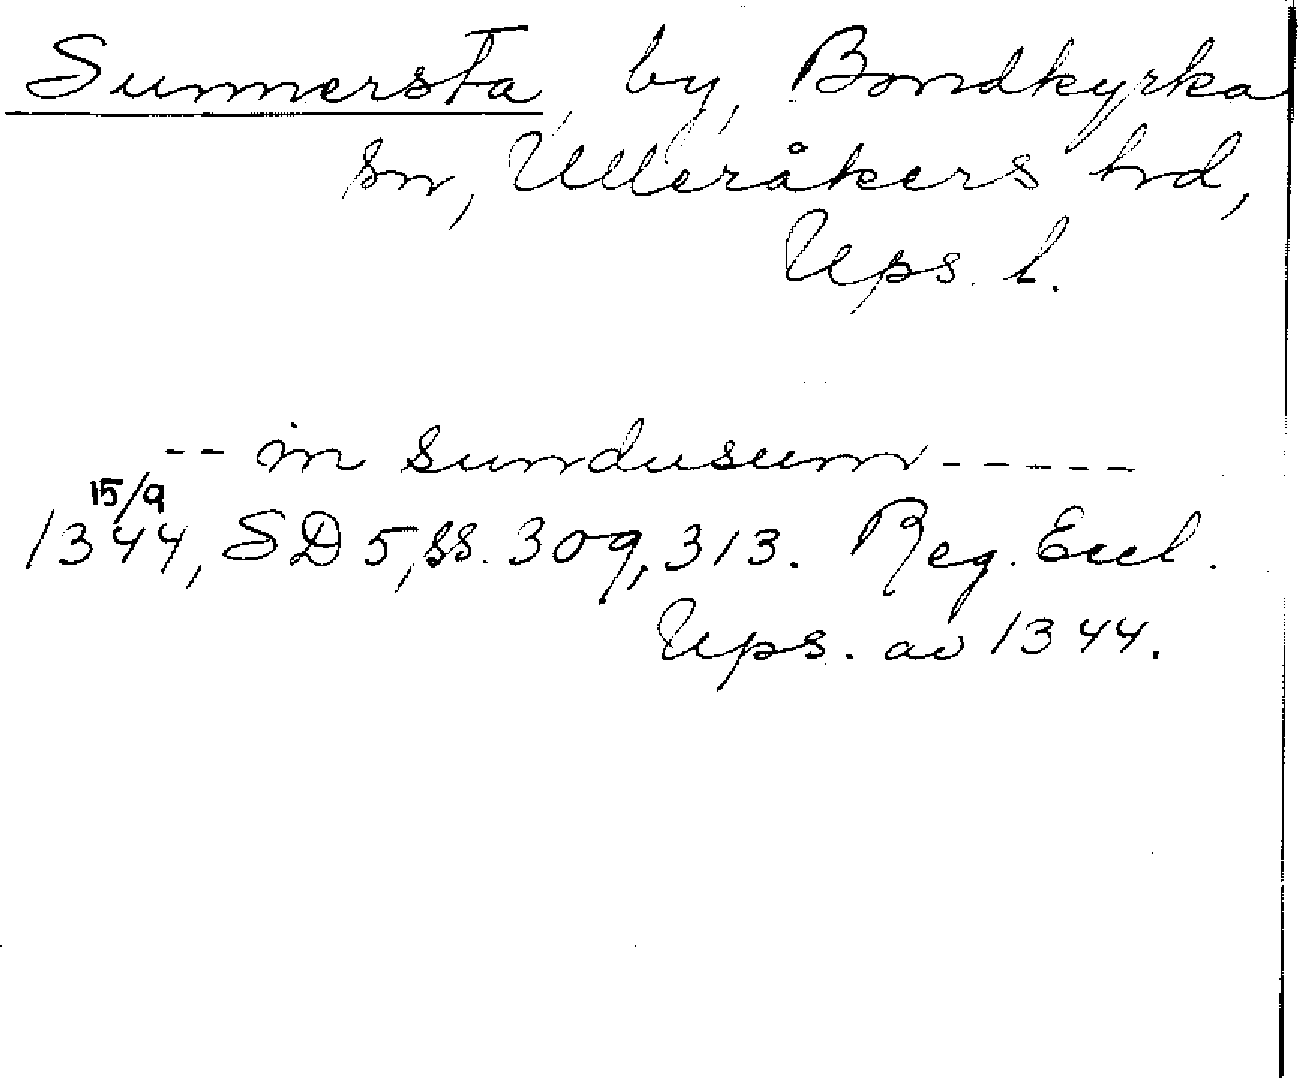 Sunnersta, by, Bondkyrka
sn, Ulleråkers hd,
Ups. l.
-- in sundusum -----
15/9
1344, SD 5, ss. 309, 313. Reg. Eccl.
Ups. av 1344.